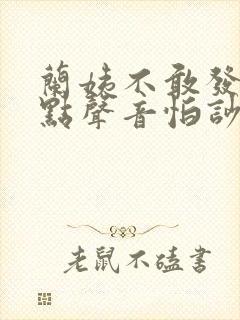 蘭姨不敢發
點聲音怕訬
老鼠不磕書